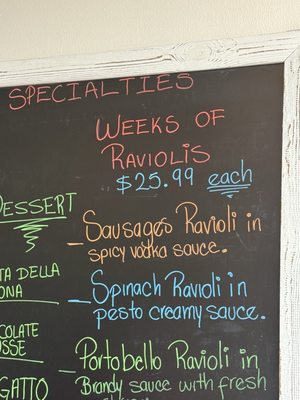 SPECIALTIES
WEEKS OF
RAVIOLIS
$25.99 each
DESSERT
Sausages Ravioli in
spicy vodka sauce.
TA DELLA
ONA
Spinach Ravioli in
pesto creamy sauce.
OCOLATE
SSE
Portobello Ravioli in
Brandy sauce with fresh
GATTO